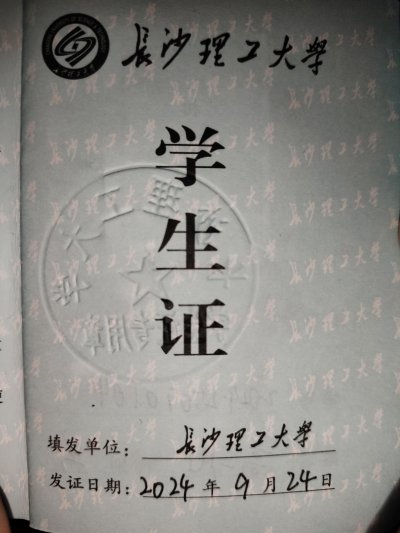 長沙理工大學
学
生
证
填发单位：長沙理工大學
发证日期：2024年9月24日